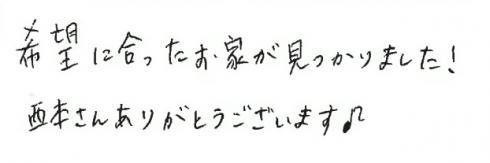 希望に合ったお家が見つかりました!
西本さんありがとうございます♪